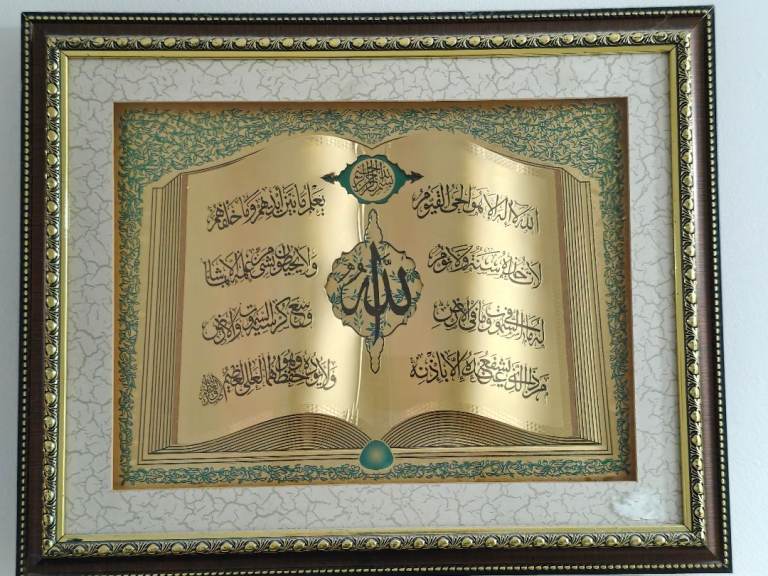 بسم الله الرحمن الرحيم
الله لا إله إلا هو الحي القيوم
لا تأخذه سنة ولا نوم
له ما في السموت وما في الأرض
من ذا الذي يشفع عنده إلا بإذنه
الله
يعلم ما بين أيديهم وما خلفهم
ولا يحيطون بشيء من علمه إلا بما شاء
وسع كرسيه السموت والأرض
ولا يؤده حفظهما وهو العلي العظيم